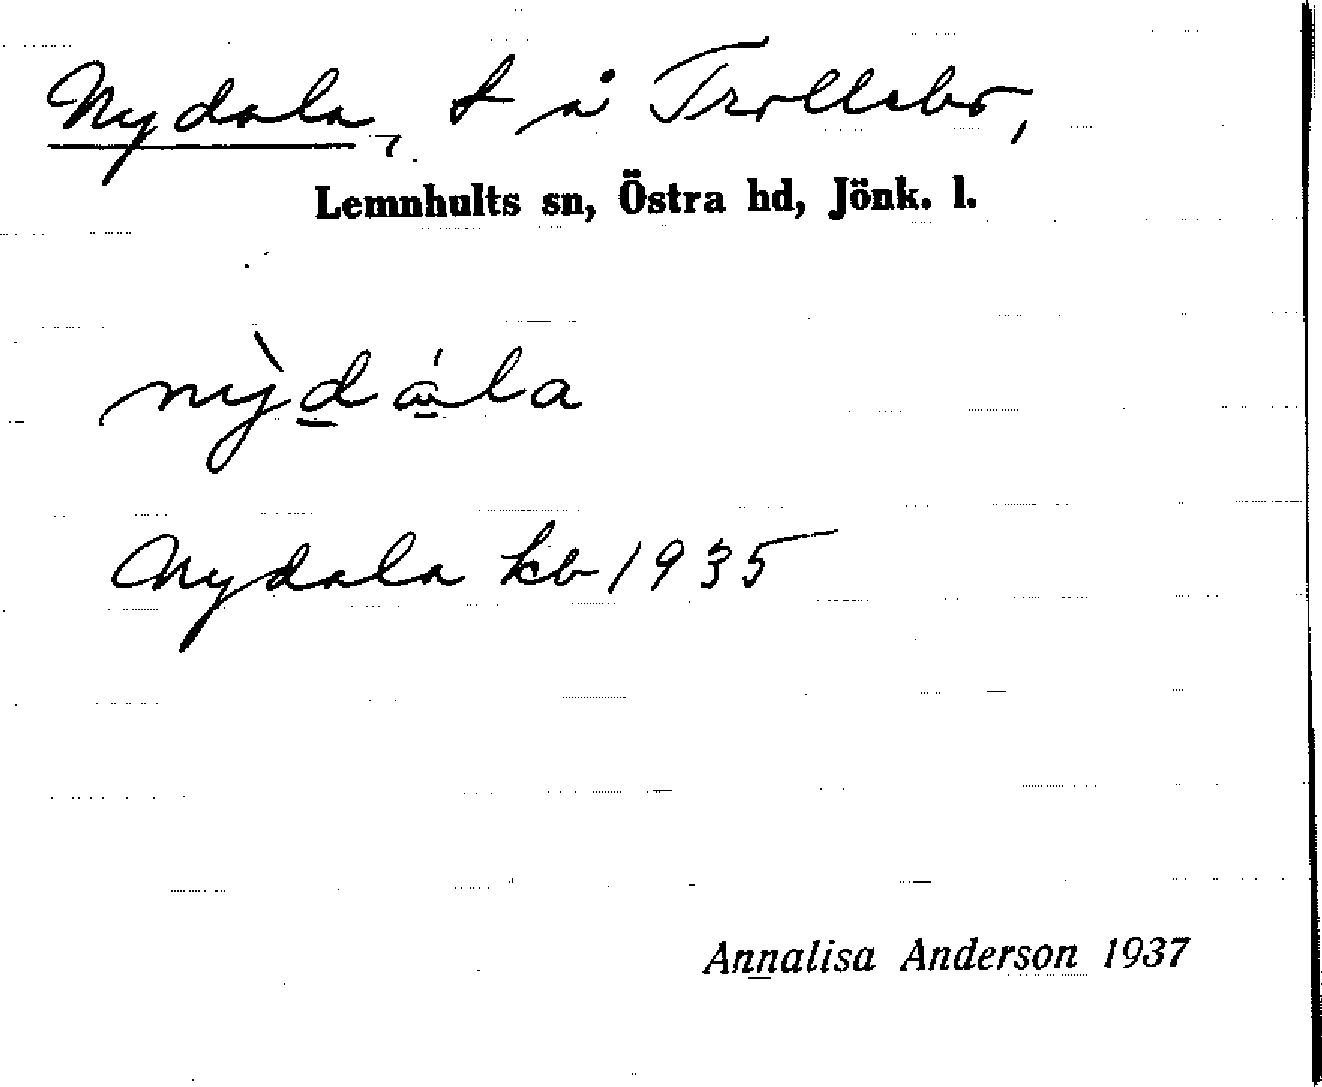 Nydala, t å Trollebo,
Lemnhults sn, Östra hd, Jönk. l.
nỳdála
Nydala kb 1935
Annalisa Anderson 1937